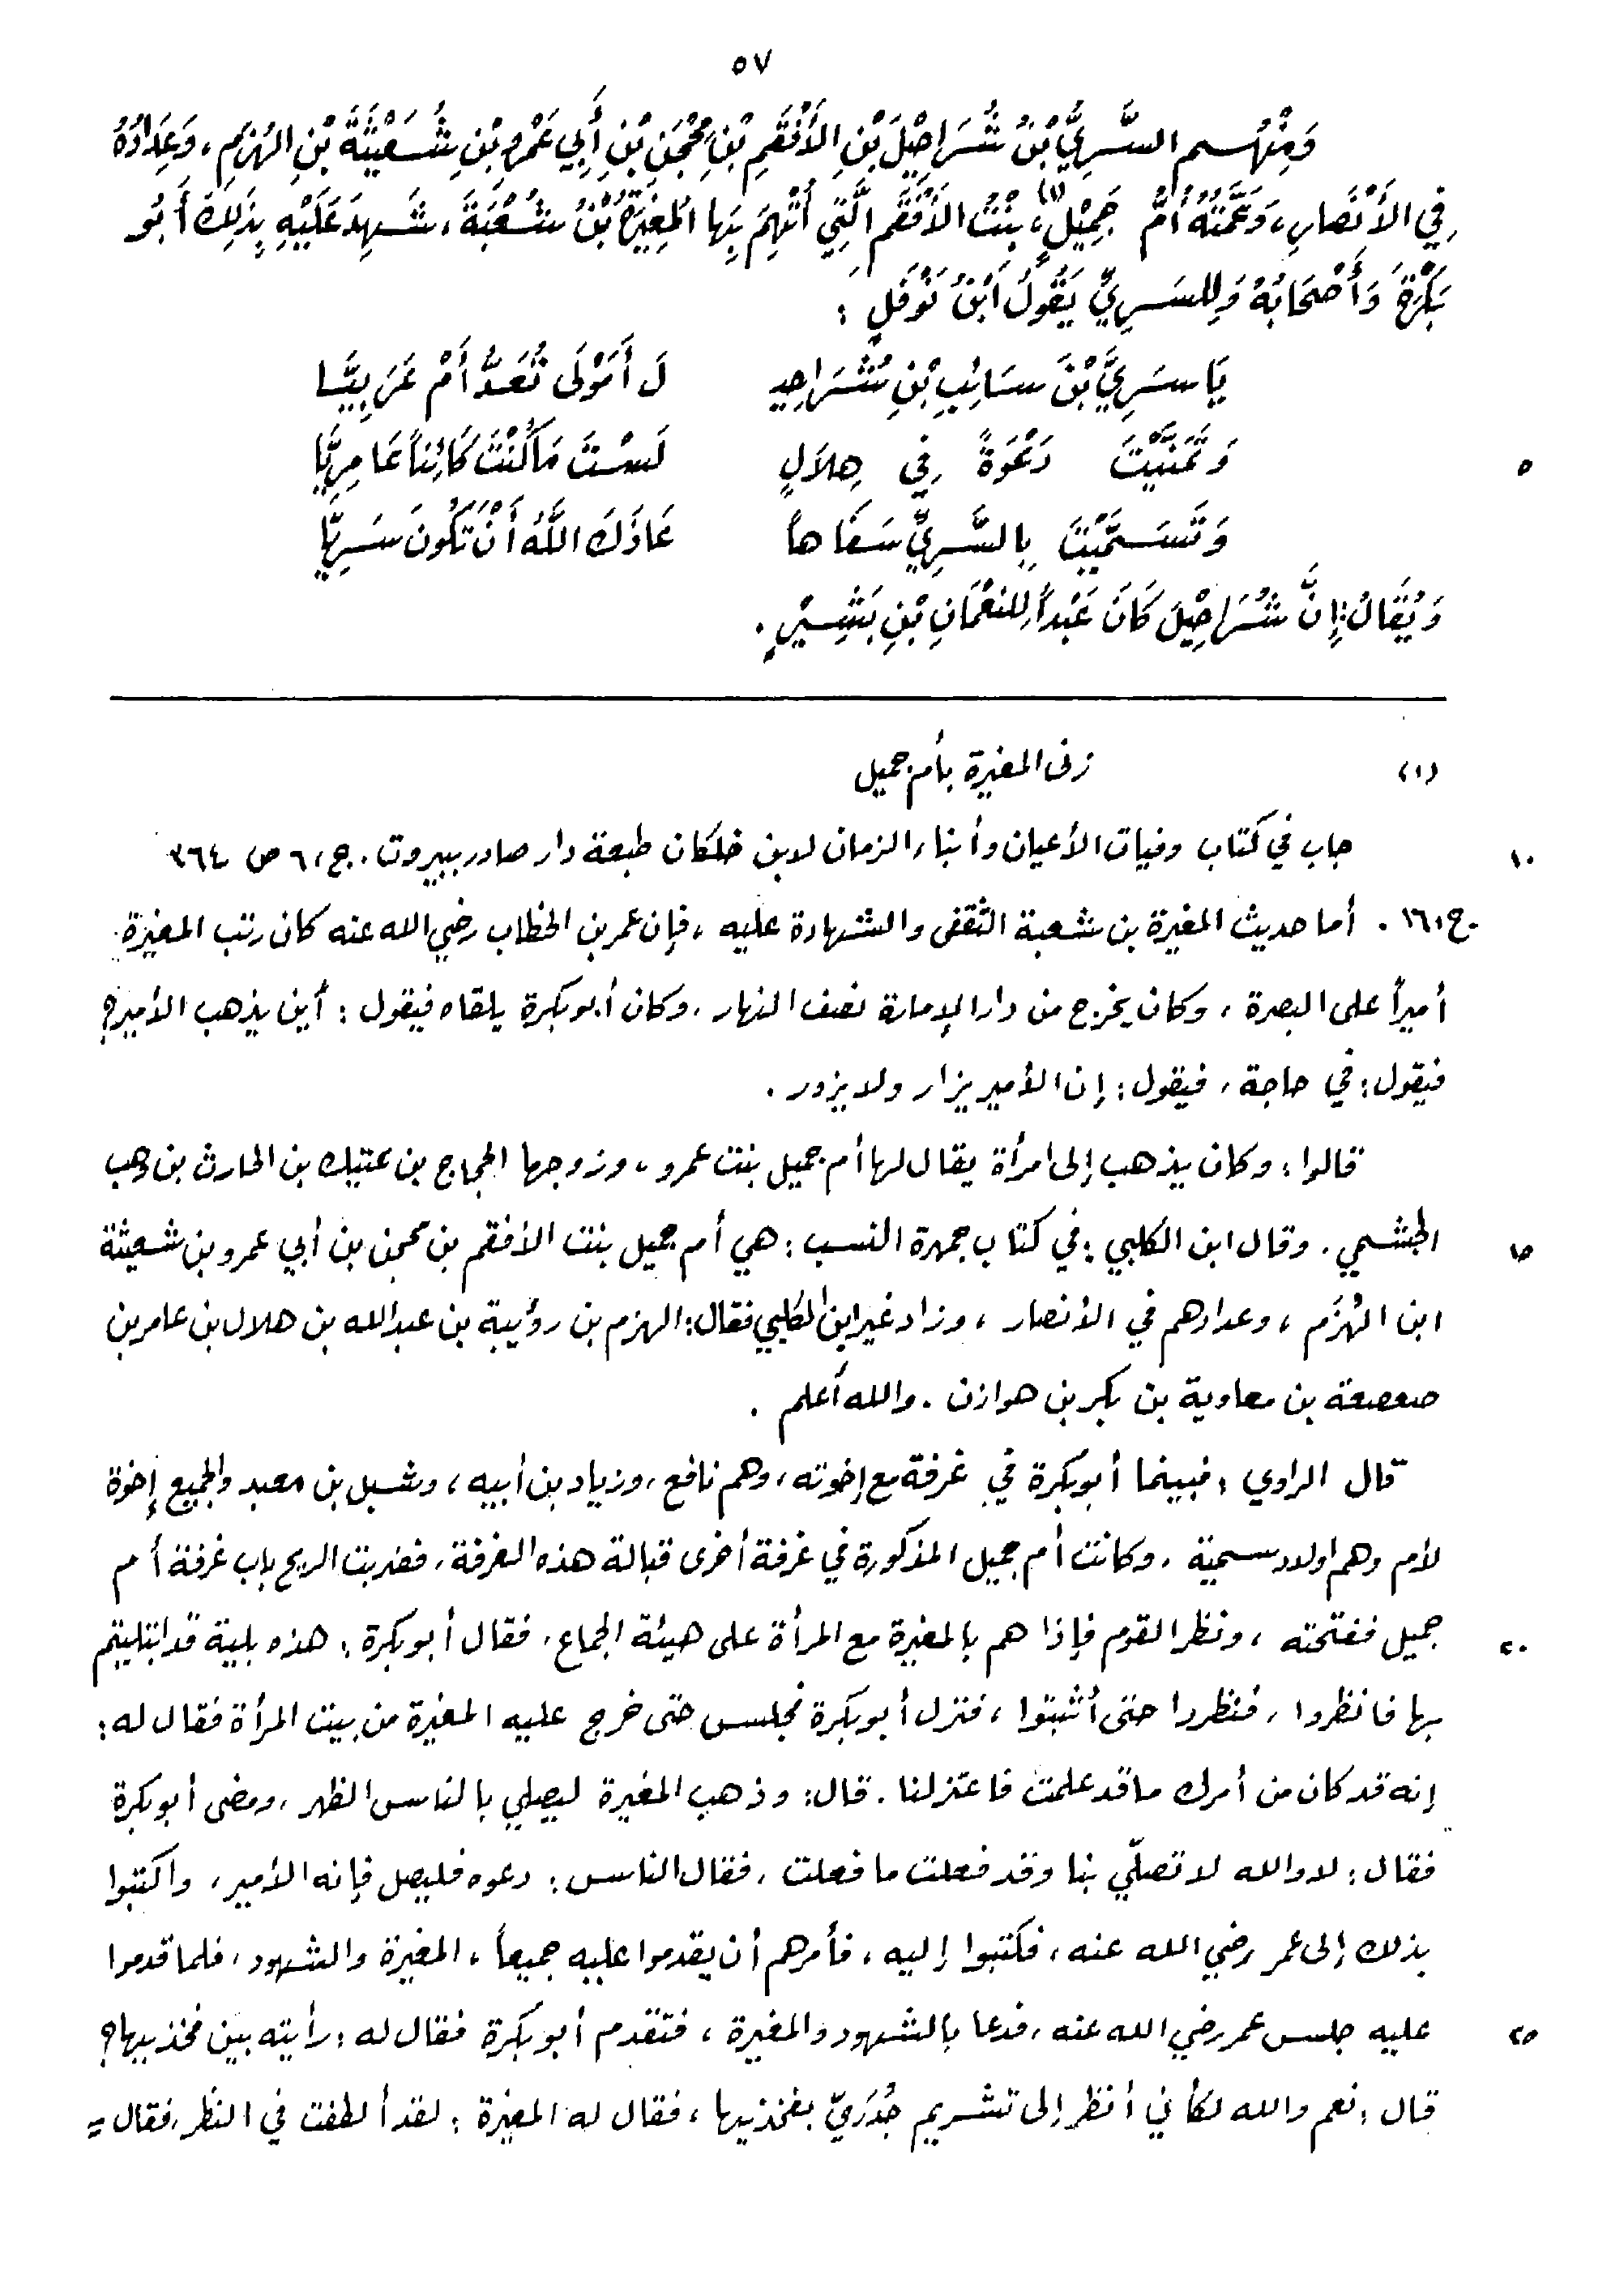 ٥٧
وَمِنْهُم السَّرِيُّ بْنُ شُرَاحِيْلَ بْنِ الأَفْقَمِ بْنِ مِحْجَنِ بْنِ أَبِي عَمْرِو بْنِ شُعَيْثَةَ بْنِ الهُزَمِ، وَعِدَادُهُ
فِي الأَنْصَارِ، وَعَمَّتُهُ أُمُّ جَمِيْلٍ (١)، بِنْتُ الأَفْقَمِ الَّتِي اُتُّهِمَ بِهَا المُغِيْرَةُ بْنُ شُعْبَةَ، شَهِدَ عَلَيْهِ بِذَلِكَ أَبُو
بَكْرَةَ وَأَصْحَابُهُ وَلِلسَرِيِّ يَقُولُ ابْنُ نَوْفَلٍ :
يَا سَرِيَّ بْنَ سَائِبِ بْنِ شُشَرَاحِيـ لَ أَمَوْلَى تُعَدُّ أَمْ عَرَبِيَّا
٥ وَتَمَنَّيْتَ دَعْوَةً فِي هِلاَلٍ لَسْتَ مَا كُنْتَ كَائِناً عَامِرِيَّا
وَتَسَمَّيْتَ بِالسَّرِيِّ سَفَاهاً عَاذَكَ اللَّهُ أَنْ تَكُونَ سَرِيَّا
وَيُقَالُ: إِنَّ شُرَاحِيْلَ كَانَ عَبْداً لِلنعْمَانِ بْنِ بَشِيْرٍ .
(١) زنى المغيرة بأم جميل
١٠ جاب في كتاب وفيات الأعيان وأبناء الزمان لابن خلكان طبعة دار صادر ببيروت . ج ،٦ ص ٣٦٤
ج ١٦١ . أما حديث المغيرة بن شعبة الثقفي والشهادة عليه ، فإن عمر بن الخطاب رضي الله عنه كان رتب المغيرة
أميراً على البصرة ، وكان يخرج من دار الإمارة نصف النهار ، وكان أبو بكرة يلقاه فيقول : أين يذهب الأمير؟
فيقول : في حاجة ، فيقول : إن الأمير يزار ولا يزور .
قالوا : وكان يذهب إلى امرأة يقال لها أم جميل بنت عمرو ، وزوجها الحجاج بن عتيك بن الحارث بن وهب
١٥ الجشمي . وقال ابن الكلبي : في كتاب جمهرة النسب : هي أم جميل بنت الأفقم بن محجن بن أبي عمرو بن شعيثة
ابن الهُزَم ، وعدادهم في الأنصار ، وزاد غير ابن الكلبي فقال : الهزم بن رؤيبة بن عبدالله بن هلال بن عامر بن
صعصعة بن معاوية بن بكر بن هوازن . والله أعلم .
قال الراوي : فبينما أبو بكرة في غرفة مع إخوته ، وهم نافع ، وزياد بن أبيه ، وشبل بن معبد والجميع إخوة
لأم وهم اولاد سمية ، وكانت أم جميل المذكورة في غرفة أخرى قبالة هذه الغرفة ، فضربت الريح باب غرفة أم
٢٠ جميل ففتحته ، ونظر القوم فإذا هم بالمغيرة مع المرأة على هيئة الجماع ، فقال أبو بكرة : هذه بلية قد ابتليتم
بها فانظروا ، فنظروا حتى أثبتوا ، فنزل أبو بكرة فجلس حتى خرج عليه المغيرة من بيت المرأة فقال له :
إنه قد كان من أمرك ما قد علمت فاعتزلنا . قال : وذهب المغيرة ليصلي بالناس الظهر ، ومضى أبو بكرة
فقال : لا والله لا تصلّي بنا وقد فعلت ما فعلت ، فقال الناس : دعوه فليصل فإنه الأمير ، واكتبوا
بذلك إلى عمر رضي الله عنه ، فكتبوا إليه ، فأمرهم أن يقدموا عليه جميعاً ، المغيرة والشهود ، فلما قدموا
٢٥ عليه جلس عمر رضي الله عنه ، فدعا بالشهود والمغيرة ، فتقدم أبو بكرة فقال له : رأيته بين فخذيها؟
قال : نعم والله لكأني أنظر إلى تشريم جُدَريّ بفخذيها ، فقال له المغيرة : لقد ألطفت في النظر ، فقال =